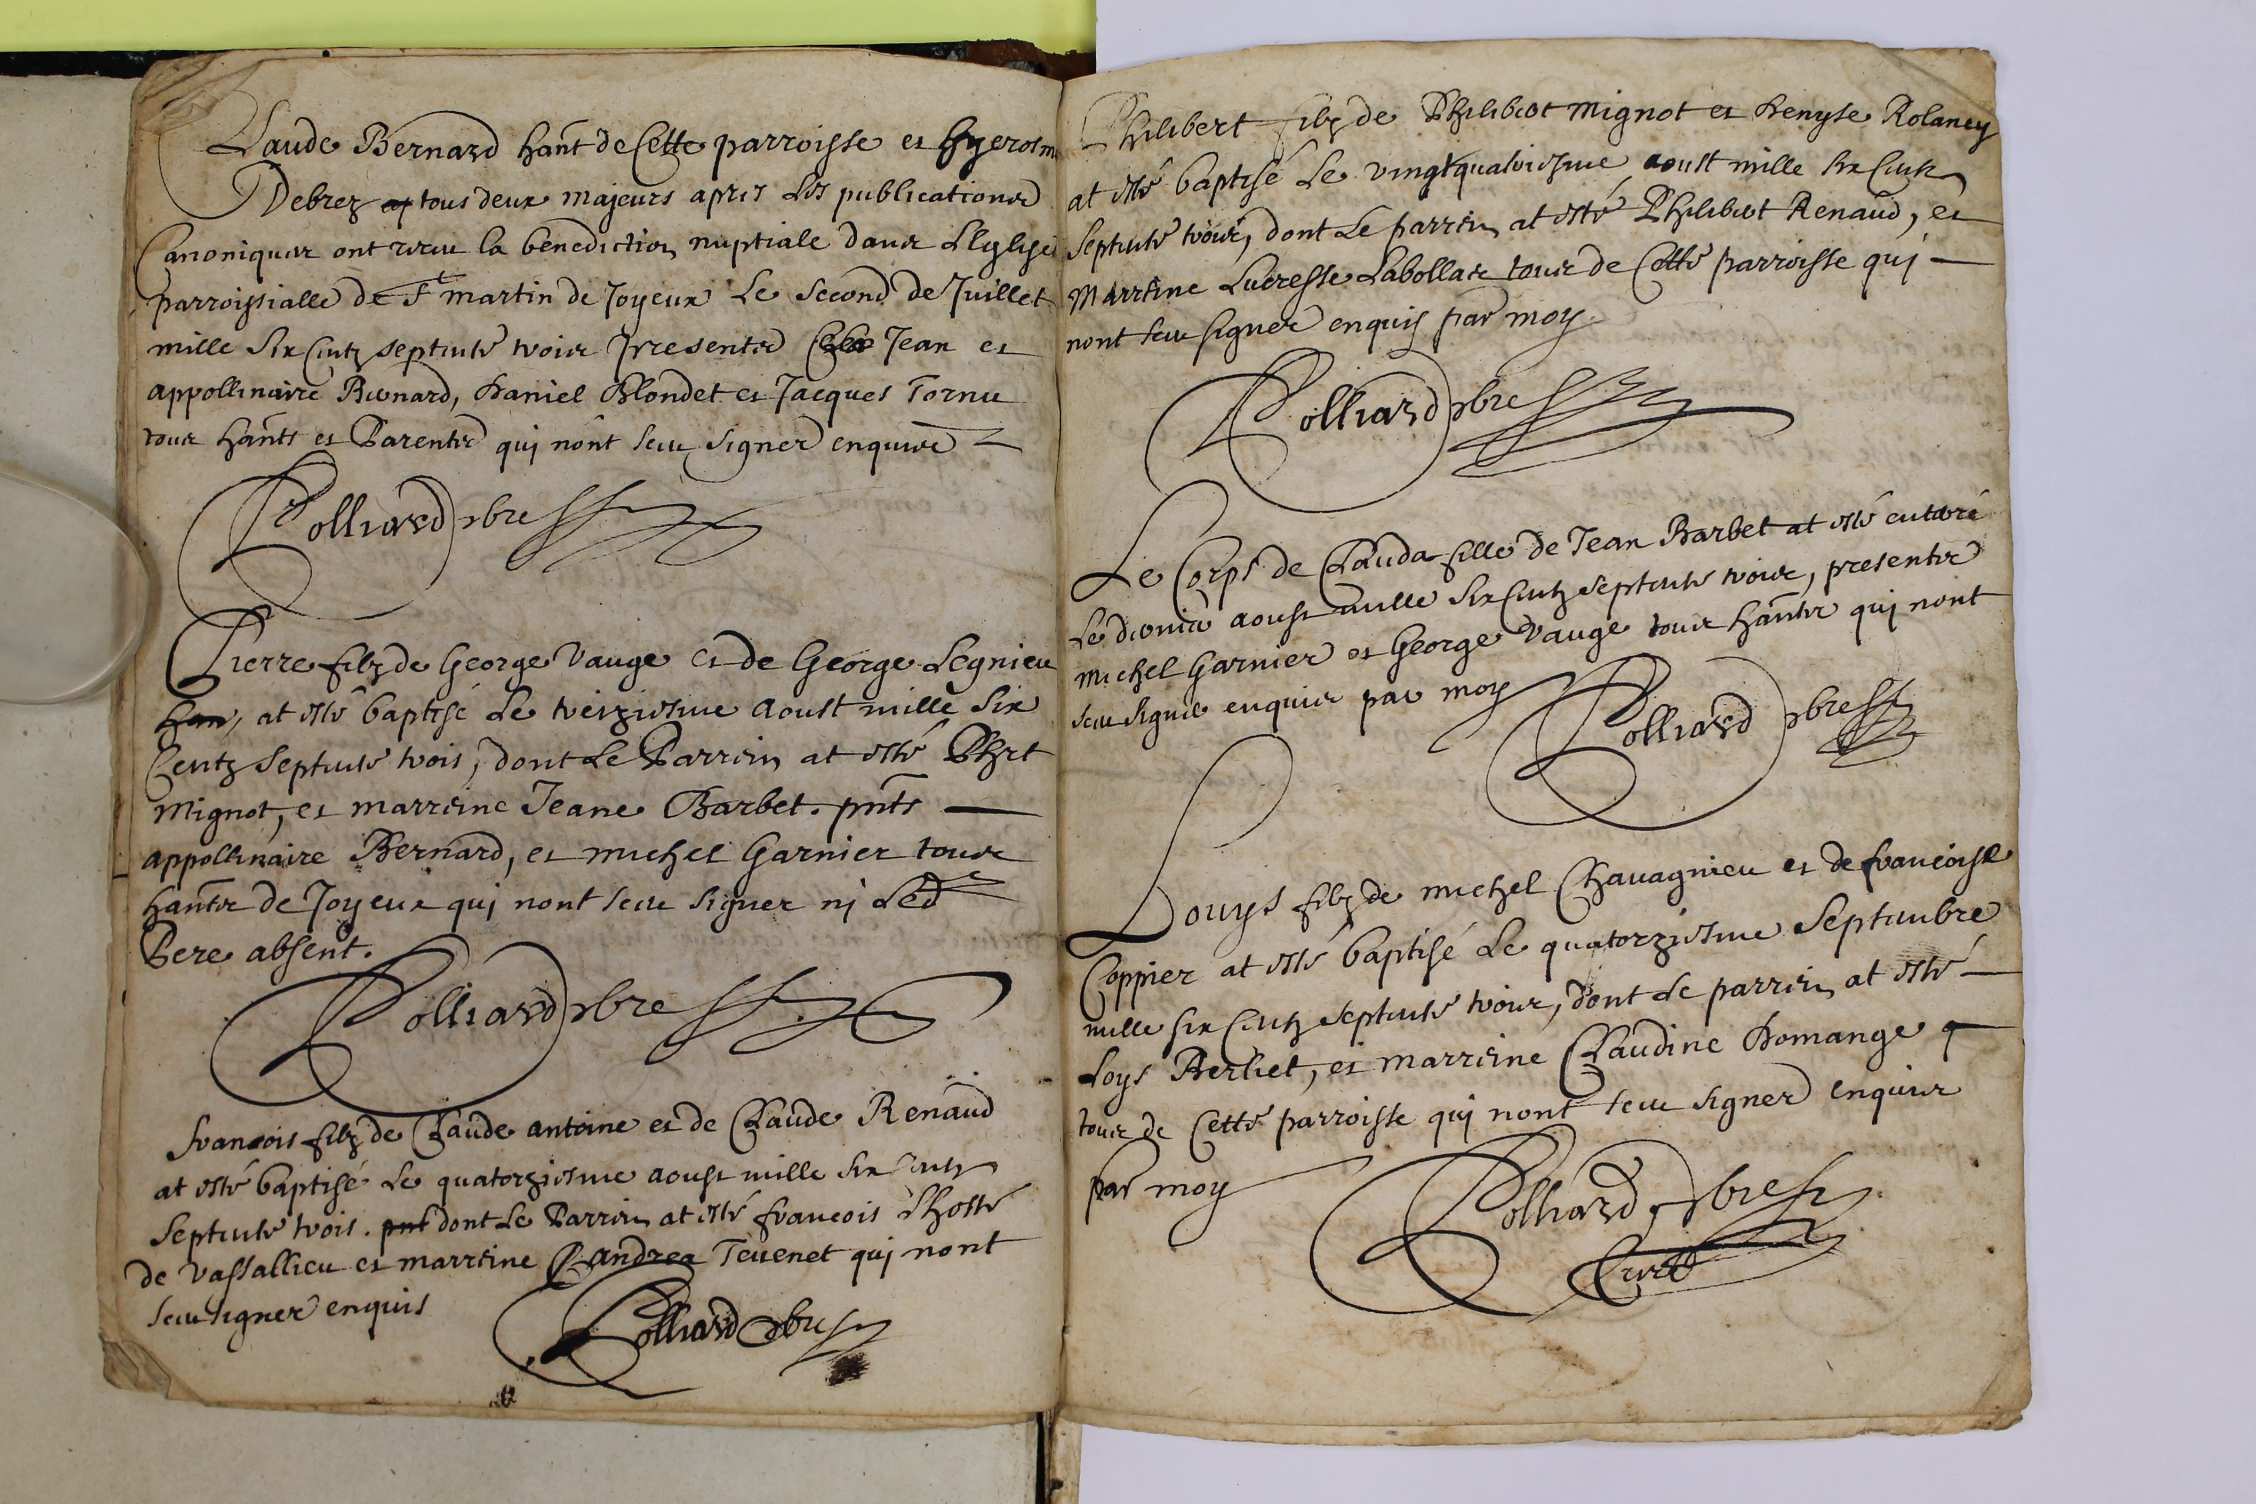 Claude Bernard hant de Cette parroisse et Hyerosme
Debrez tous deux majeurs apres les publications
Canoniques ont receu la benediction nuptiale dans L'Eglise
parroissialle de St martin de Joyeux Le second de Juillet
mille six centz septente trois presents Jean et
appollinaire Bernard, Daniel Blondet et Jacques Tornu
tous hants et Parents qui n'ont sceu signer enquis
Polliard pbre
Pierre filz de George Vauge et de George Legnieu
at esté baptisé Le treiziesme Aoust mille six
Centz septente trois, dont Le Parrin at esté Phrt
Mignot, et marreine Jeane Barbet. pnts
appollinaire Bernard, et michel Garnier tous
hants de Joyeux qui n'ont sceu signer ni Led
Pere absent.
Polliard pbre
francois filz de Claude antoine et de Claude Renaud
at esté baptisé Le quatorziesme aoust mille six centz
septente trois. pnt dont Le Parrin at esté francois L'hoste
de Vassallieu et marreine andrea Tevenet qui n'ont
sceu signer enquis
Polliard pbre
Philibert filz de Philibert Mignot et Denyse Rolancy
at esté baptisé Le vingtquatriesme aoust mille six centz
septente trois, dont Le parrin at esté Philibert Renaud, et
Marreine Lucresse Labollate tous de Cette parroisse qui
nont sceu signer enquis par moy
Polliard pbre
Le Corps de Clauda fille de Jean Barbet at esté enterré
Le dernier aoust mille six centz septente trois, presents
Michel Garnier et George Vauge tous hants qui nont
sceu signer enquis par moy
Polliard pbre
Louys filz de michel Chavagnieu et de francoise
Coppier at esté baptisé Le quatorziesme Septembre
mille six centz septente trois, dont Le parrin at esté
Loys Berliet, et marreine Claudine Domange
tous de Cette parroisse qui nont sceu signer enquis
par moy
Polliard, pbre
Curé